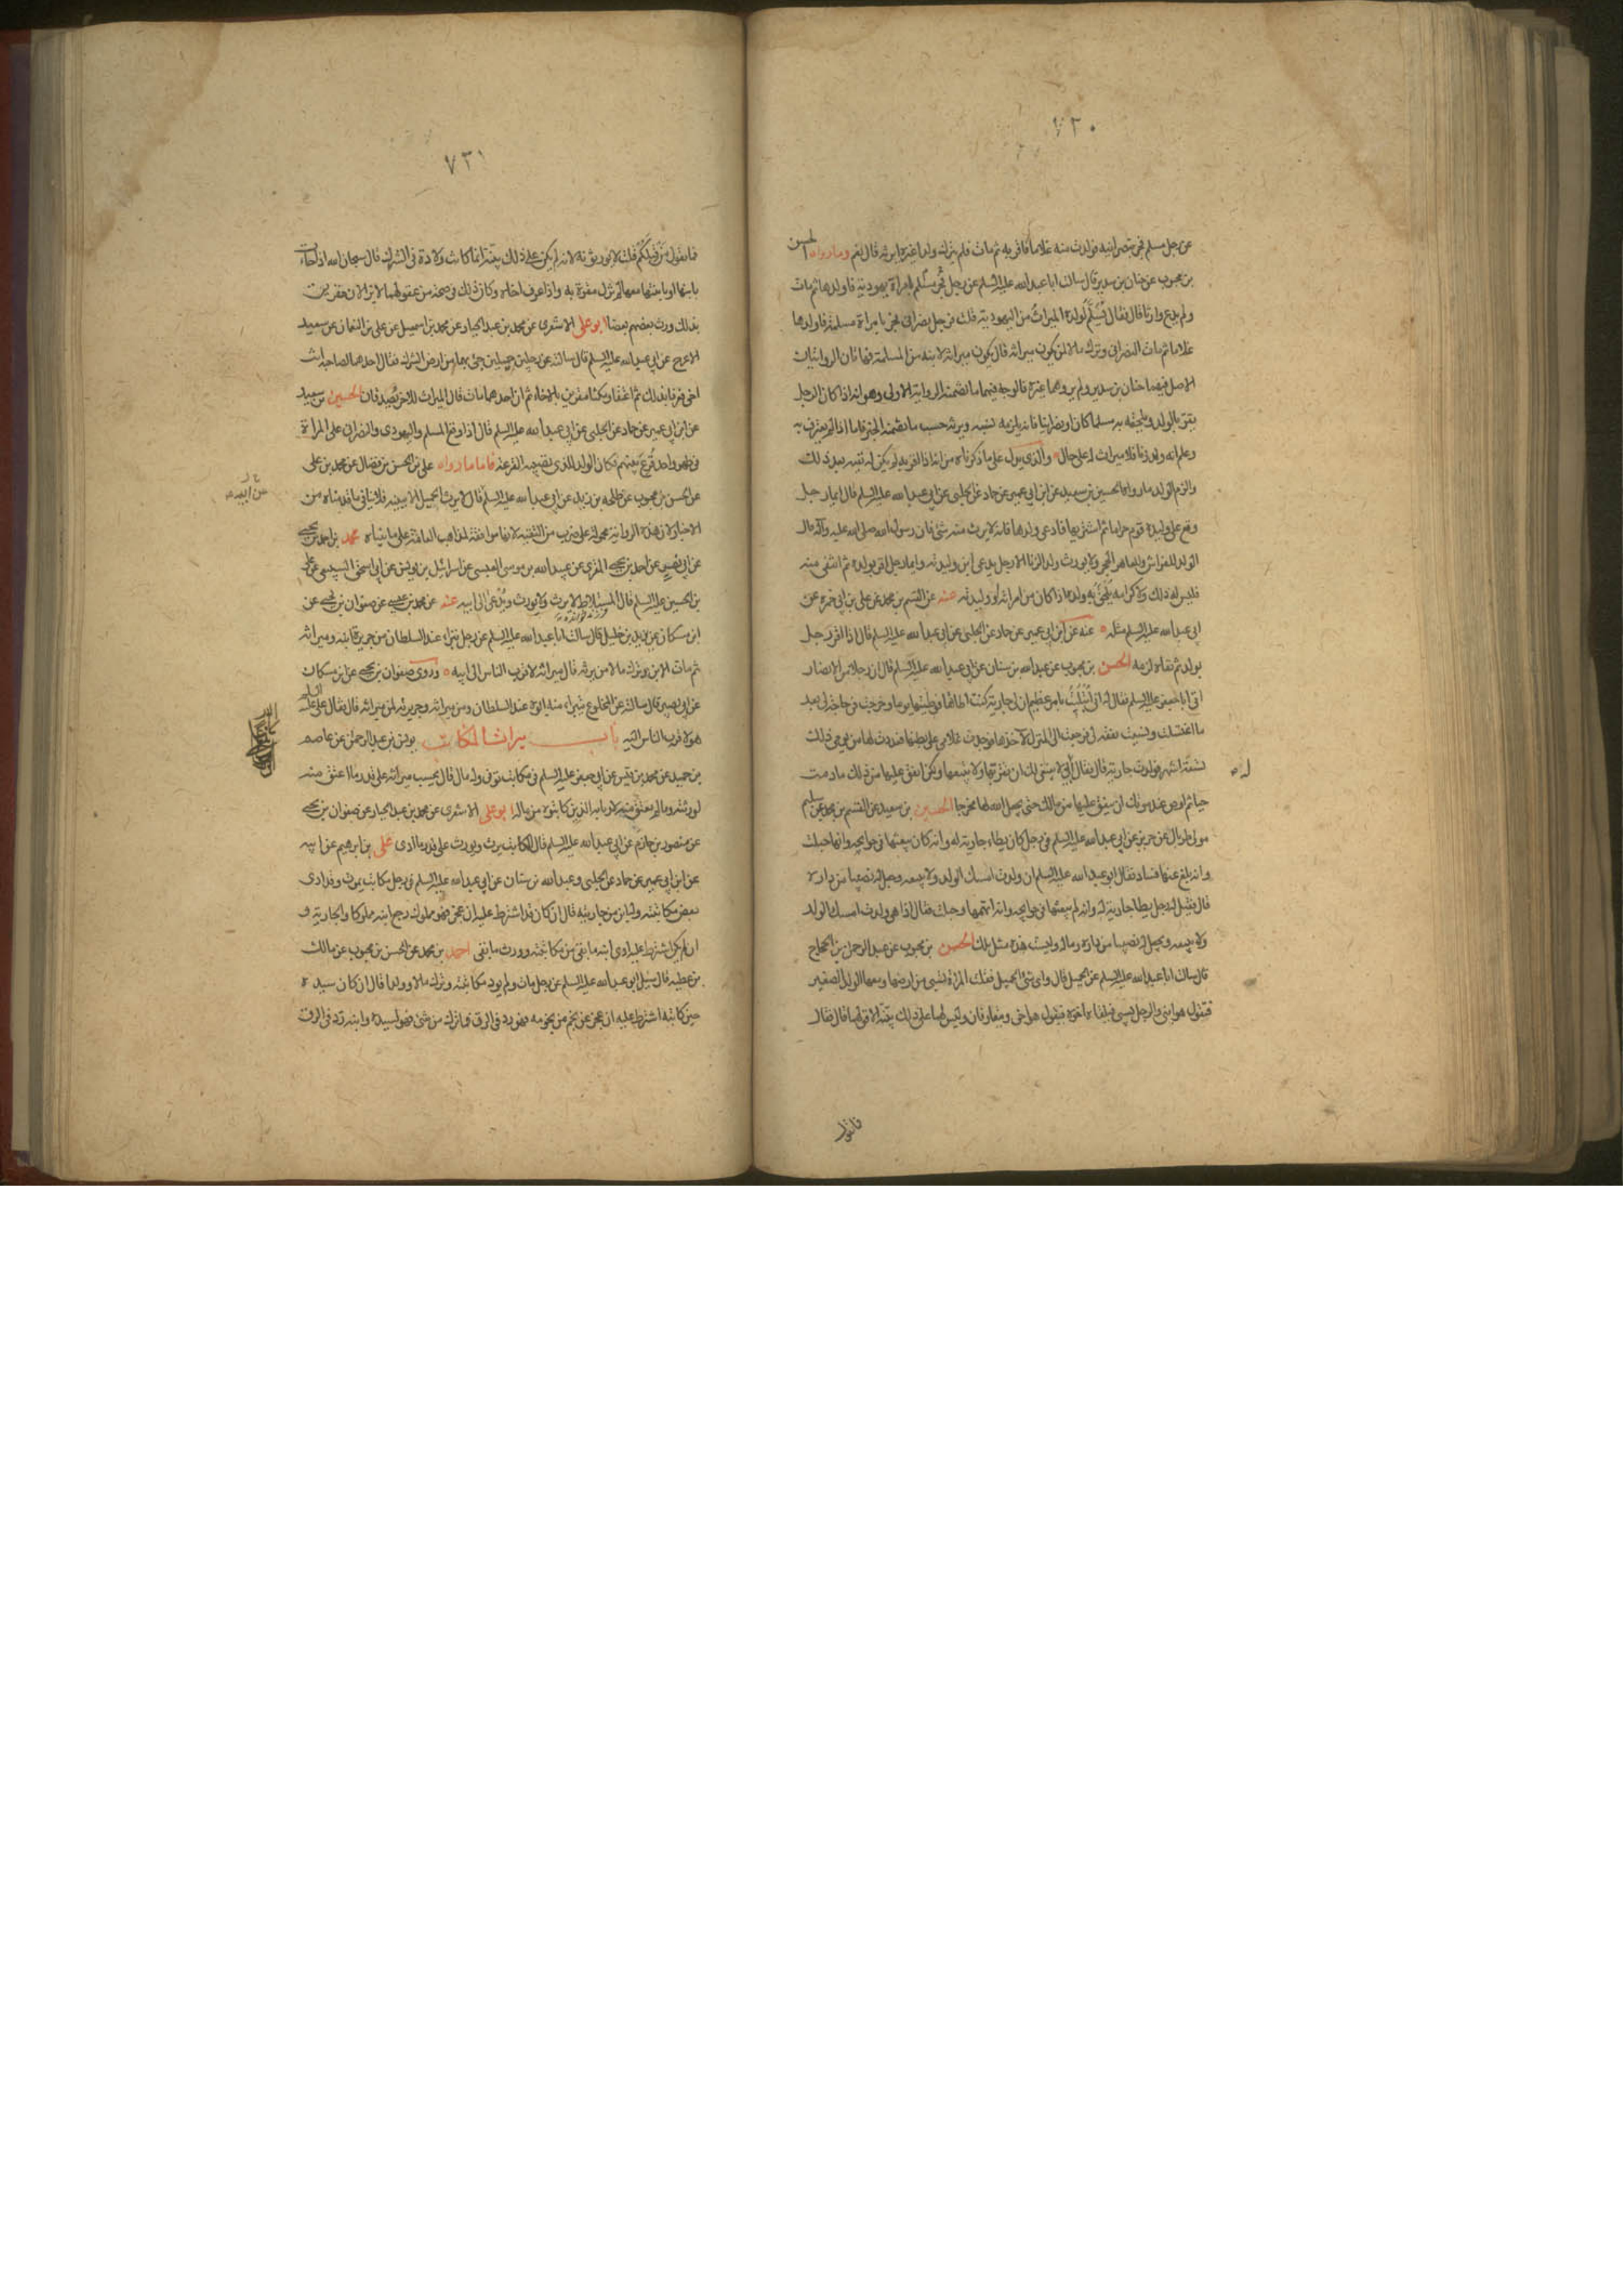 ٧٣٠
عن رجل مسلم فجر بنصرانية فولدت منه غلاما فاقر به ثم مات فلم يترك ولدا غيره ايرثه قال نعم وما رواه الحسن
بن محبوب عن حنان بن سدير قال سالت ابا عبدالله عليه السلم عن رجل مسلم فجر بامراة يهودية فاولدها ثم مات
ولم يدع وارثا قال فقال يسلم لولده الميراث من اليهودية قلت فرجل نصراني فجر بامراة مسلمة فاولدها
غلاما ثم مات النصراني وترك مالا لمن يكون ميراثه قال يكون ميراثه لابنه من المسلمة فهاتان الروايتان
الاصل فيهما حنان بن سدير ولم يروهما غيره فالوجه فيهما ما تضمنه الرواية الاولى وهو انه اذا كان الرجل
يقر بالولد ويلحقه به مسلما كان او نصرانيا فانه يلزمه نسبه ويرثه حسب ما تضمنه الخبر فاما اذا لم يعترف به
وعلم انه ولد زنا فلا ميراث له على حال والذي يدل على ما ذكرناه من انه اذا اقر به لم يكن له نفيه بعد ذلك
والزم الولد ما رواه الحسين بن سعيد عن ابن ابي عمير عن حماد عن الحلبي عن ابي عبدالله عليه السلم قال ايما رجل
وقع على وليدة قوم حراما ثم اشتريها فادعى ولدها فانه لا يورث منه شئ فان رسول الله صلى الله عليه وآله قال
الولد للفراش وللعاهر الحجر ولا يورث ولد الزنا الا رجل يدعى ابن وليدته وايما رجل اقر بولده ثم انتفى منه
فليس له ذلك ولا كرامة يلحق به ولده اذا كان من امراته او وليدته عنه عن القسم بن محمد عن علي بن ابي حمزه عن
ابي عبدالله عليه السلم مثله عنه عن ابن ابي عمير عن حماد عن الحلبي عن ابي عبدالله عليه السلم قال اذا اقر رجل
بولد ثم نفاه لزمه الحسن بن محبوب عن عبدالله بن سنان عن ابي عبدالله عليه السلم قال ان رجلا من الانصار
اتى ابا جعفر عليه السلم فقال له اني ابتليت بامر عظيم ان لي جارية كنت اطاها فوطئتها يوما وخرجت في حاجة لي بعد
ما اغتسلت ونسيت نفقة لي فرجعت الى المنزل لاخذها فوجدت غلامي على بطنها فعددت لها من يومي ذلك
تسعة اشهر فولدت جارية قال فقال ابي لا ينبغي لك ان تقربها ولا تبيعها ولكن انفق عليها من مالك ما دمت
حيا ثم اوص عند موتك ان ينفق عليها من مالك حتى يجعل الله لها مخرجا الحسين بن سعيد عن القسم بن محمد عن سليم
مولى طربال عن حريز عن ابي عبدالله عليه السلم في رجل كان يطاء جارية له وانه كان يبعثها في حوايجه وانها حبلت
وانه بلغه عنها فساد فقال ابو عبدالله عليه السلم ان ولدت امسك الولد ولا يبيعه ويجعل له نصيبا من داره
قال فقيل له رجل يطا جارية له وانه لم يبعثها في حوايجه وانه اتهمها وحبلت فقال اذا هي ولدت امسك الولد
ولا يبيعه ويجعل له نصيبا من داره وماله وليست هذه مثل تلك الحسن بن محبوب عن عبد الرحمن بن الحجاج
قال سالت ابا عبدالله عليه السلم عن الحميل قال واى شئ الحميل فقلت المراة تسبى من ارضها ومعها الولد الصغير
فتقول هو ابني والرجل يسبى فيلقا اخاه فيقول هو اخي ويتعارفان وليس لهما على ذلك بينة الا قولهما قال فقال
فما يقول
٧٣١
فما يقول من قبلكم قلت لا يورثونه لانه لم يكن على ذلك بينة انما كانت ولادة في الشرك قال سبحان الله اذا جاءت
بابنها او بابنتها معها لم تزل مقرة به واذا عرف اخاه وكان ذلك في صحة من عقولهما لا يزالان مقرين
بذلك ورث بعضهم بعضا ابو علي الاشعرى عن محمد بن عبد الجبار عن محمد بن اسمعيل عن علي بن النعمان عن سعيد
الاعرج عن ابي عبدالله عليه السلم قال سالته عن رجلين حميلين جئ بهما من ارض الشرك فقال احدهما لصاحبه انت
اخي فعرفا بذلك ثم اعتقا ومكثا مقرين بالاخاء ثم ان احدهما مات قال الميراث للاخ يصدقان الحسين بن سعيد
عن ابن ابي عمير عن حماد عن الحلبي عن ابي عبدالله عليه السلم قال اذا وقع المسلم واليهودى والنصراني على المراة
في طهر واحد قرع بينهم فكان الولد للذى تصيبه القرعة فاما ما رواه علي بن الحسن بن فضال عن محمد بن علي
عن الحسن بن محبوب عن طلحه بن زيد عن ابي عبدالله عليه السلم قال لا يورث الحميل الا ببينه فلا ينافي ما قدمناه من
عن ابيه
الاخبار لان هذه الرواية محمولة على ضرب من التقية لانها موافقة لمذاهب العامة على ما بيناه محمد بن احمد بن يحيى
عن ابي نصير عن احمد بن يحيى المقرى عن عبيد الله بن موسى العبسى عن اسرائيل بن يونس عن ابي اسحق السبيعى عن علي
بن الحسين عليه السلم قال المستلاط لا يرث ولا يورث ويدعى الى ابيه عنه عن محمد بن عيسى عن صفوان بن يحيى عن
ابن مسكان عن يزيد بن خليل قال سالت ابا عبدالله عليه السلم عن رجل تبرا عند السلطان من جريرة ابنه وميراثه
ثم مات الابن وترك مالا من يرثه قال ميراثه لاقرب الناس الى ابيه وروى صفوان بن يحيى عن ابن مسكان
عن ابي بصير قال سالته عن المخلوع يتبرا منه ابوه عند السلطان ومن ميراثه وجريرته لمن ميراثه قال فقال علي عليه السلم
هو لاقرب الناس اليه باب ميراث المكاتب يونس بن عبد الرحمن عن عاصم
بن حميد عن محمد بن قيس عن ابي جعفر عليه السلم في مكاتب توفى وله مال قال يحسب ميراثه على قدر ما اعتق منه
لورثته وما لم يعتق منه لاربابه الذين كاتبوه من ماله ابو علي الاشعرى عن محمد بن عبد الجبار عن صفوان بن يحيى
عن منصور بن حازم عن ابي عبدالله عليه السلم قال المكاتب يرث ويورث على قدر ما ادى علي بن ابرهيم عن ابيه
عن ابن ابي عمير عن حماد عن الحلبي وعبدالله بن سنان عن ابي عبدالله عليه السلم في رجل مكاتب يموت وقد ادى
بعض مكاتبته وله ابن من جاريته قال ان كان قد اشترط عليه ان عجز فهو مملوك رجع ابنه مملوكا والجارية و
ان لم يكن اشترط عليه ادى ابنه ما بقي من مكاتبته وورث ما بقي احمد بن محمد عن الحسن بن محبوب عن مالك
بن عطية قال سئل ابو عبدالله عليه السلم عن رجل مات ولم يود مكاتبته وترك مالا وولدا قال ان كان سيده
حين كاتبه اشترط عليه ان عجز عن نجم من نجومه فهو رد في الرق فما ترك من شئ فهو لسيده وابنه رد في الرق